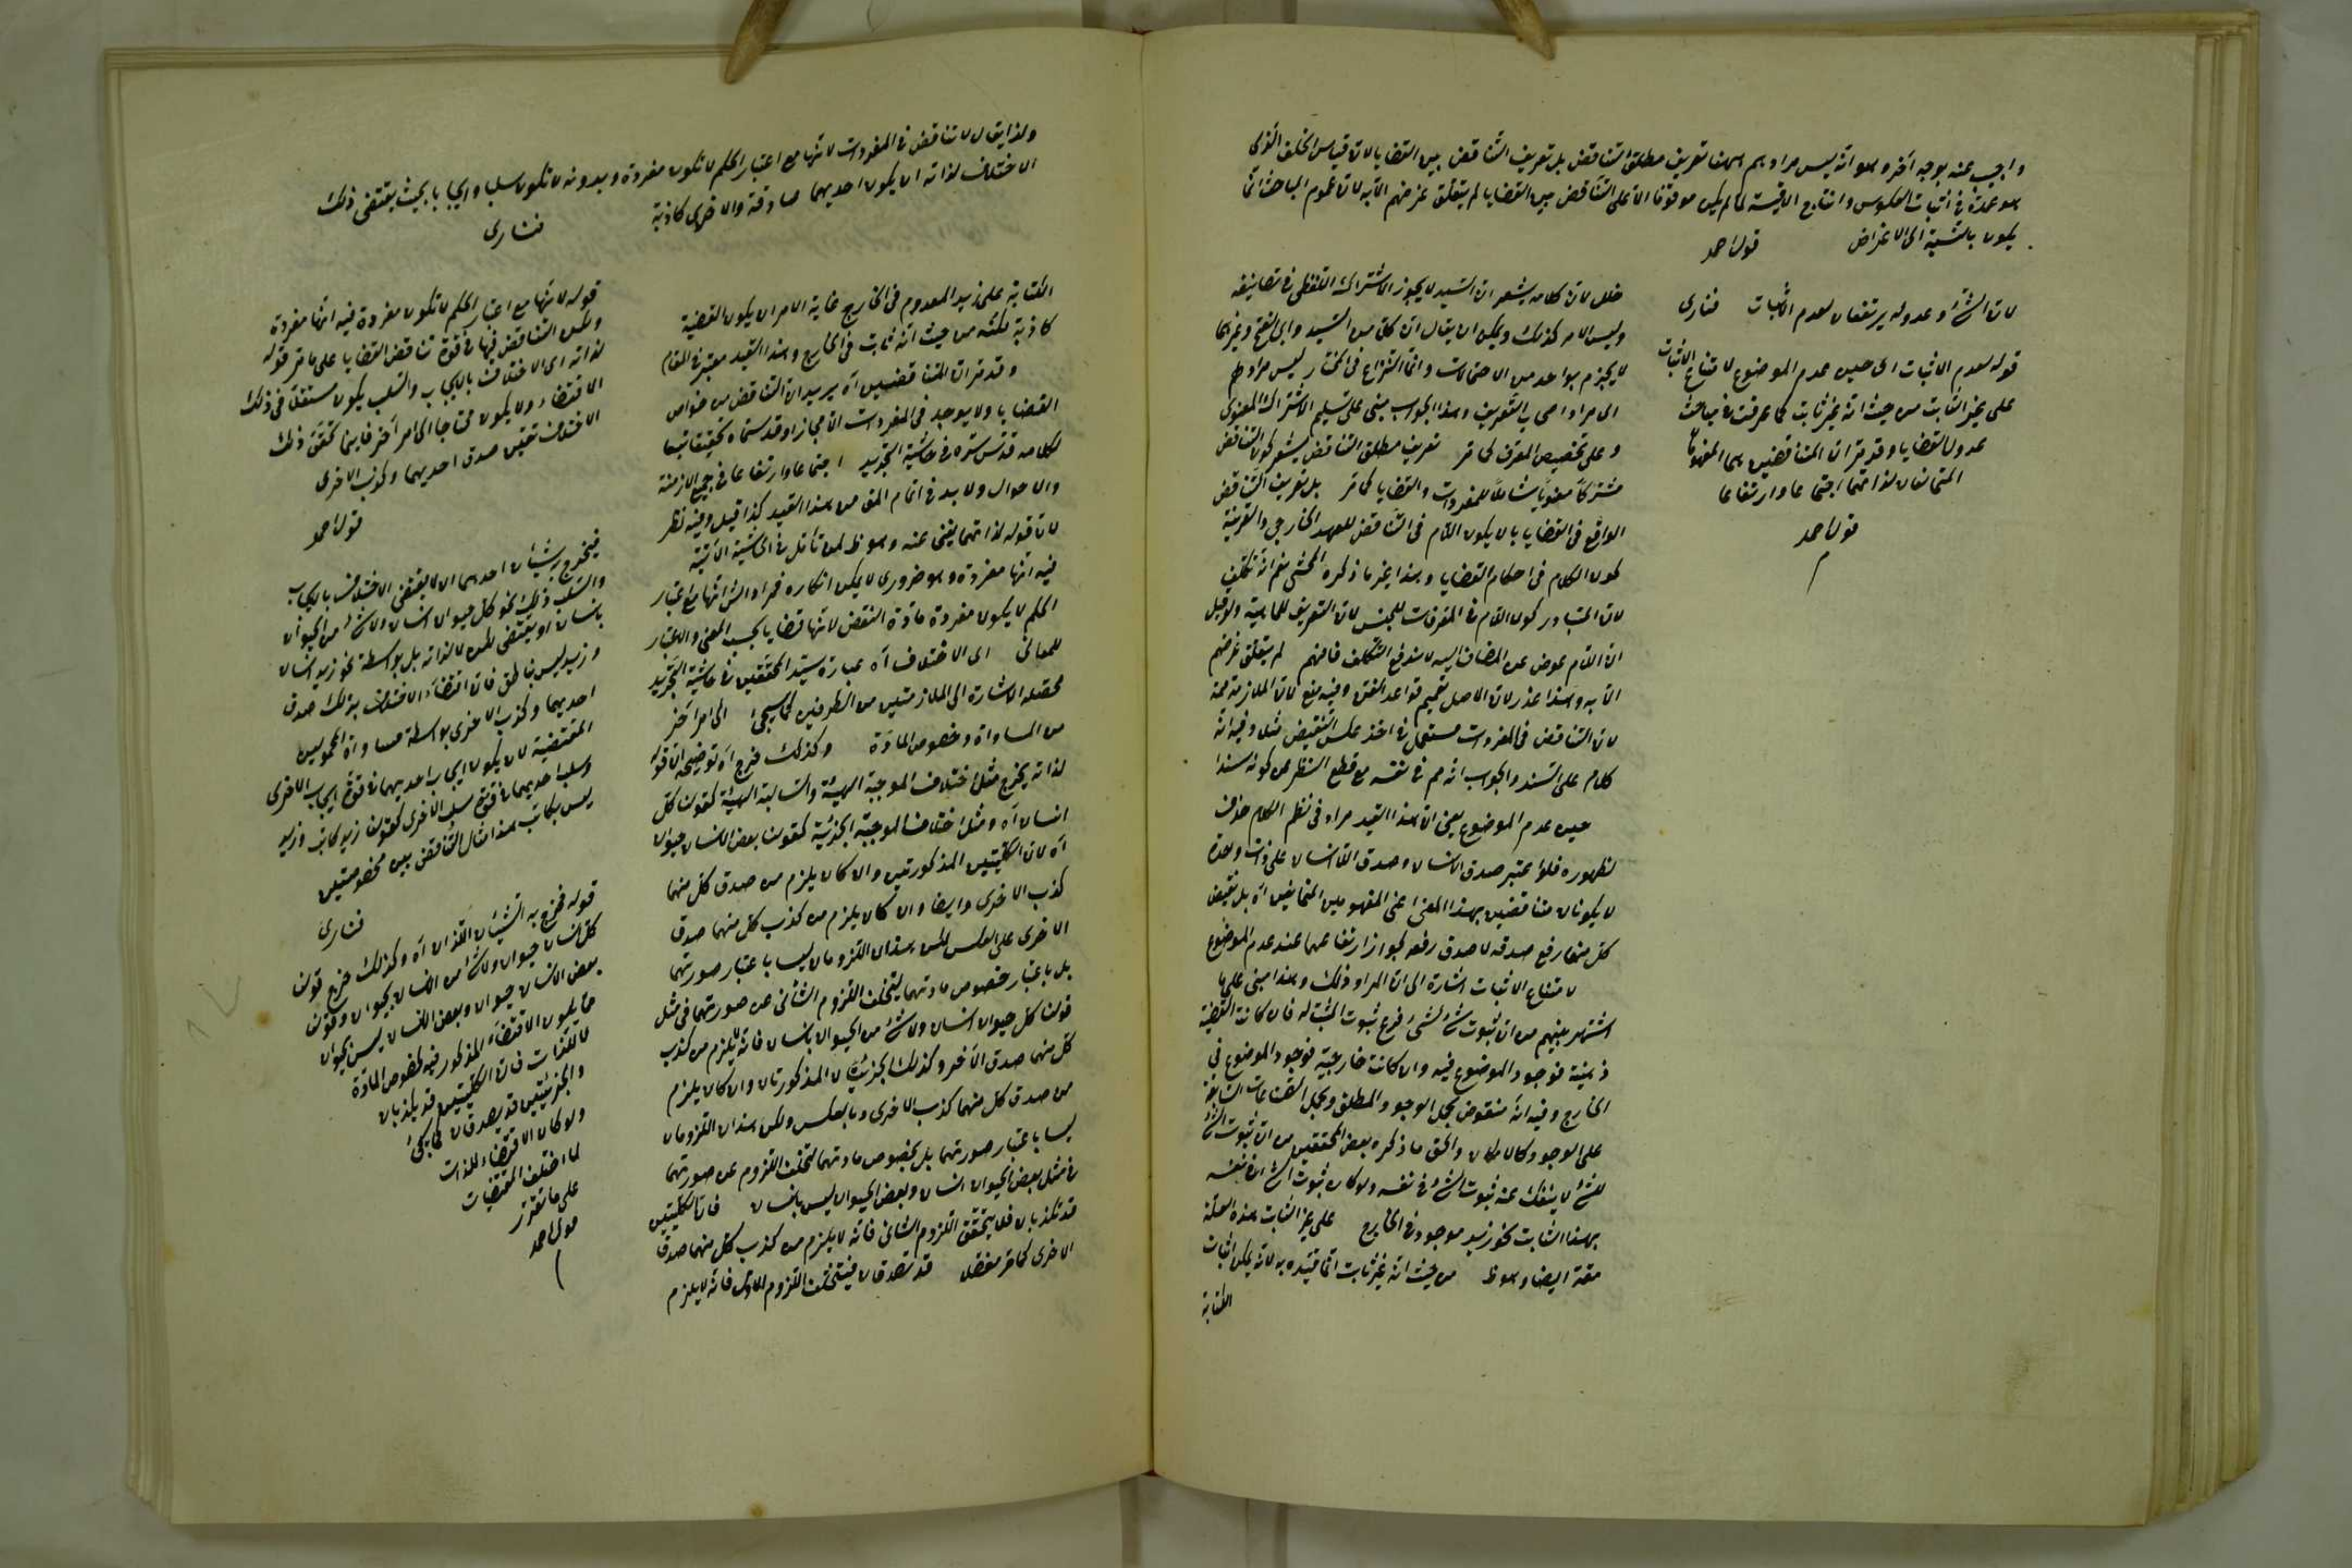 واجيب عنه بوجه آخر وهو انه ليس مرادهم ههنا تعريف مطلق التناقض بل تعريف التناقض بين القضايا لان قياس الخلف الذى
هو عمدة فى اثبات العكوس وانتاج الاقيسة لما لم يكن موقوفا الا على التناقض بين القضايا لم يتعلق غرضهم الا به لان عموم المباحث انما
يكون بالنسبة الى الاغراض قول احمد
لان الشئ وعدوله يرتفعان لعدم الاثبات فنارى
قوله لعدم الاثبات اى حين عدم الموضوع لامتناع الاثبات
على غير الثابت من حيث انه غير ثابت كما عرفت فى مباحث
عدول القضايا وقد مر ان المتناقضين هما المفهومان
المتمانعان لذاتهما اجتماعا وارتفاعا
قول احمد
خلل لان كلامه يشعر ان السيد لا يجوز الاشتراك اللفظى فى تصانيفه
وليس الامر كذلك ويمكن ان يقال ان كلا من السيد وابى الفتح وغيرهما
لا يجزم بواحد من الاحتمالات وانما النزاع فى المختار ليس مرادهم
اى مراد اصحاب التعريف وهذا الجواب مبنى على تسليم الاشتراك المعنوى
وعلى تخصيص المعرف كما مر تعريف مطلق التناقض يشعر كون التناقض
مشتركا معنويا شاملا للمفردات والقضايا كما مر بل تعريف التناقض
الواقع فى القضايا بان يكون اللام فى التناقض للعهد الخارجى والقرينة
كون الكلام فى احكام القضايا وهذا غير ما ذكره المحشى نعم انه تكلف
لان المتبادر كون اللام فى المعرفات للجنس لان التعريف للماهية ولو قيل
ان اللام عوض عن المضاف اليه لاندفع التكلف فافهم لم يتعلق غرضهم
الا به وهذا عذر لان الاصل تعميم قواعد الفن وفيه منع لان الملازمة ممنوعة
لان التناقض فى المفردات مستعمل فى اخذ عكس النقيض مثلا وفيه انه
كلام على السند والجواب انه مم فى نفسه مع قطع النظر عن كونه سندا
حين عدم الموضوع يعنى ان هذا القيد مراد فى نظم الكلام حذف
لظهوره فلو اعتبر صدق الانسان وصدق اللاانسان على ذات واحدة
لا يكونان متناقضين بهذا المعنى اعنى المفهومين المتمانعين اه بل نقيض
كل منهما رفع صدقه لا صدق رفعه لجواز ارتفاعهما عند عدم الموضوع
لامتناع الاثبات اشارة الى ان المراد ذلك وهذا مبنى على ما
اشتهر بينهم من ان ثبوت شئ لشئ فرع ثبوت المثبت له فان كانت القضية
ذهنية فوجود الموضوع فيه وان كانت خارجية فوجود الموضوع فى
الخارج وفيه انه منقوض بحمل الوجود المطلق وبحمل الصفات السابقة
على الوجود كالامكان والحق ما ذكره بعض المحققين من ان ثبوت الشئ
للشئ لا ينفك عنه ثبوت الشئ فى نفسه ولو كان ثبوت الشئ فى نفسه
بهذا الثابت نحو زيد موجود فى الخارج على غير الثابت هذه العلة
معه ايضا وهو ظ من حيث انه غير ثابت انما قيده به لانه يمكن اثبات
الكتابة
ولذا يقال لا تناقض فى المفردات لانها مع اعتبار الحكم لا تكون مفردة وبدونه لا تكون سلبا وايجابا بحيث يقتضى ذلك
الاختلاف لذاته ان يكون احديهما صادقة والاخرى كاذبة
فنارى
الكتابة على زيد المعدوم فى الخارج غاية الامر ان يكون القضية
كاذبة لكنه من حيث انه ثابت فى الخارج وهذا القيد معتبر فى المقام
وقد مر ان المتناقضين اه يريد ان التناقض من خواص
القضايا ولا يوجد فى المفردات الا مجازا وقد سماه تحقيقا تبعا
لكلامه قدس سره فى حاشية التجريد اجتماعا وارتفاعا فى جميع الازمنة
والاحوال ولا بد فى اتمام المق من هذا القيد كذا قيل وفيه نظر
لان قوله لذاتهما يغنى عنه وهو ظ لمن تأمل فى الحاشية الاتية
فيه انها مفردة وهو ضرورى لا يمكن انكاره فمراد الش انها مع اعتبار
الحكم لا يكون مفردة مادة النقض لانها قضايا بحسب المعنى والاعتبار
للمعانى اى الاختلاف اه عبارة سيد المحققين فى حاشية التجريد
محصله الاشارة الى الملازمتين من الطرفين كما سيجئ الى امر اخر
من المساواة وخصوص المادة وكذلك خرج اه توضيحه ان قوله
لذاته يخرج مثل اختلاف الموجبة الكلية والسالبة الكلية كقولنا كل
انسان اه ومثل اختلاف الموجبة الجزئية كقولنا بعض الانسان حيوان
اه لان الكليتين المذكورتين وان كان يلزم من صدق كل منهما
كذب الاخرى وايضا وان كان يلزم من كذب كل منهما صدق
الاخرى على العكس لكن هذان اللزومان ليسا باعتبار صورتهما
بل باعتبار خصوص مادتهما لتخلف اللزوم الثانى عن صورتهما فى مثل
قولنا كل حيوان انسان ولا شئ من الحيوان بانسان فانه لا يلزم من كذب
كل منهما صدق الاخر وكذلك الجزئيتان المذكورتان وان كان يلزم
من صدق كل منهما كذب الاخرى وبالعكس ولكن هذان اللزومان
ليسا باعتبار صورتهما بل بخصوص مادتهما لتخلف اللزوم عن صورتهما
فى مثل بعض الحيوان انسان وبعض الحيوان ليس بانسان فان الكليتين
قد تكذبان فلا يتحقق اللزوم الثانى فانه لا يلزم من كذب كل منهما صدق
الاخرى كما مر مفصلا قد تصدقان فيتخلف اللزوم الاول فانه لا يلزم
قوله لانها مع اعتبار الحكم لا تكون مفردة فيه انها مفردة
ولكن التناقض فيها فى قوة تناقض القضايا على ما مر قوله
لذاته اى الاختلاف بالايجاب والسلب يكون مستقلا فى ذلك
الاقتضاء ولا يكون محتاجا الى امر آخر فاينما تحقق ذلك
الاختلاف تحقق صدق احديهما وكذب الاخرى
قول احمد
فيخرج به شيئان احدهما ان لا يقتضى الاختلاف بالايجاب
والسلب ذلك نحو كل حيوان انسان ولا شئ من الحيوان
بانسان او يقتضى لكن لا لذاته بل بواسطة نحو زيد انسان
وزيد ليس بناطق فان اقتضاء الاختلاف بذلك صدق
احديهما وكذب الاخرى بواسطة مساواة المحمولين
المقتضية لان يكون ايجاب احديهما فى قوة ايجاب الاخرى
وسلب احديهما فى قوة سلب الاخرى كقولنا زيد كاتب وزيد
ليس بكاتب هذا مثال التناقض بين مخصوصتين
فنارى
قوله فخرج به الشيئان اللذان اه وكذلك خرج قولنا
كل انسان حيوان ولا شئ من الانسان بحيوان وقولنا
بعض الانسان حيوان وبعض الانسان ليس بحيوان
مما يكون الاقتضاء المذكور فيه لخصوص المادة
لا للذات فان الكليتين قد يكذبان
والجزئيتين قد يصدقان كما يجئ
ولو كان الاقتضاء للذات
لما اختلف المقتضيات
على ما تقرر
قول احمد